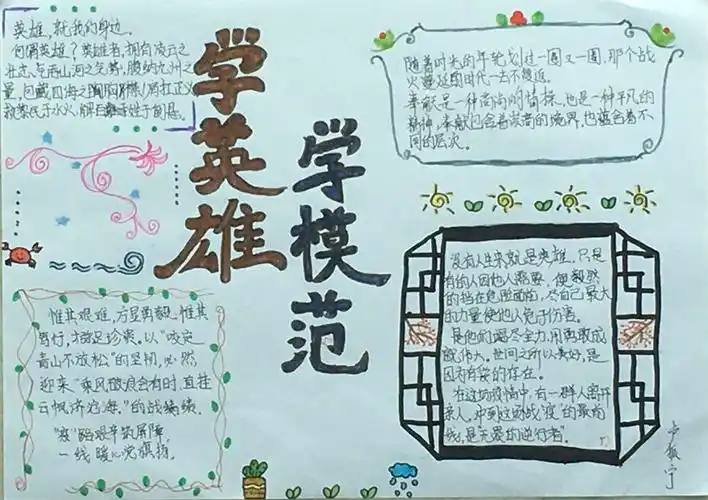 英雄，就我的身边。
何谓英雄？英雄者，拥有凌云之
壮志，气吞山河之气势，腹纳九州之
量，包藏四海之胸襟！肩扛正义
救黎民于水火，解百姓于倒悬。
学英雄
学模范
随着时光的年轮划过一圈又一圈，那个战
火蔓延的时代一去不复返。
奉献是一种高尚的情操，也是一种平凡的
精神，奉献包含着崇高的境界，也蕴含着不
同的层次。
惟其艰难，方显勇毅，惟其
笃行，才弥足珍贵。以“咬定
青山不放松”的坚韧，必然
迎来“乘风破浪会有时，直挂
云帆济沧海。”的战
“疫”路艰辛筑屏障，
一线暖心党旗扬。
没有人生来就是英雄，只是
有的人因他人需要，便毅然
的挡在危险面前，尽自己最大
的力量使他人免于伤害。
是他们竭尽全力，用勇敢成
就伟大。世间之所以美好，是
因为有爱的存在。
在这场疫情中，有一群人离开
亲人，冲到这场战“疫”的最前
线，是“无畏的逆行者”。
宁